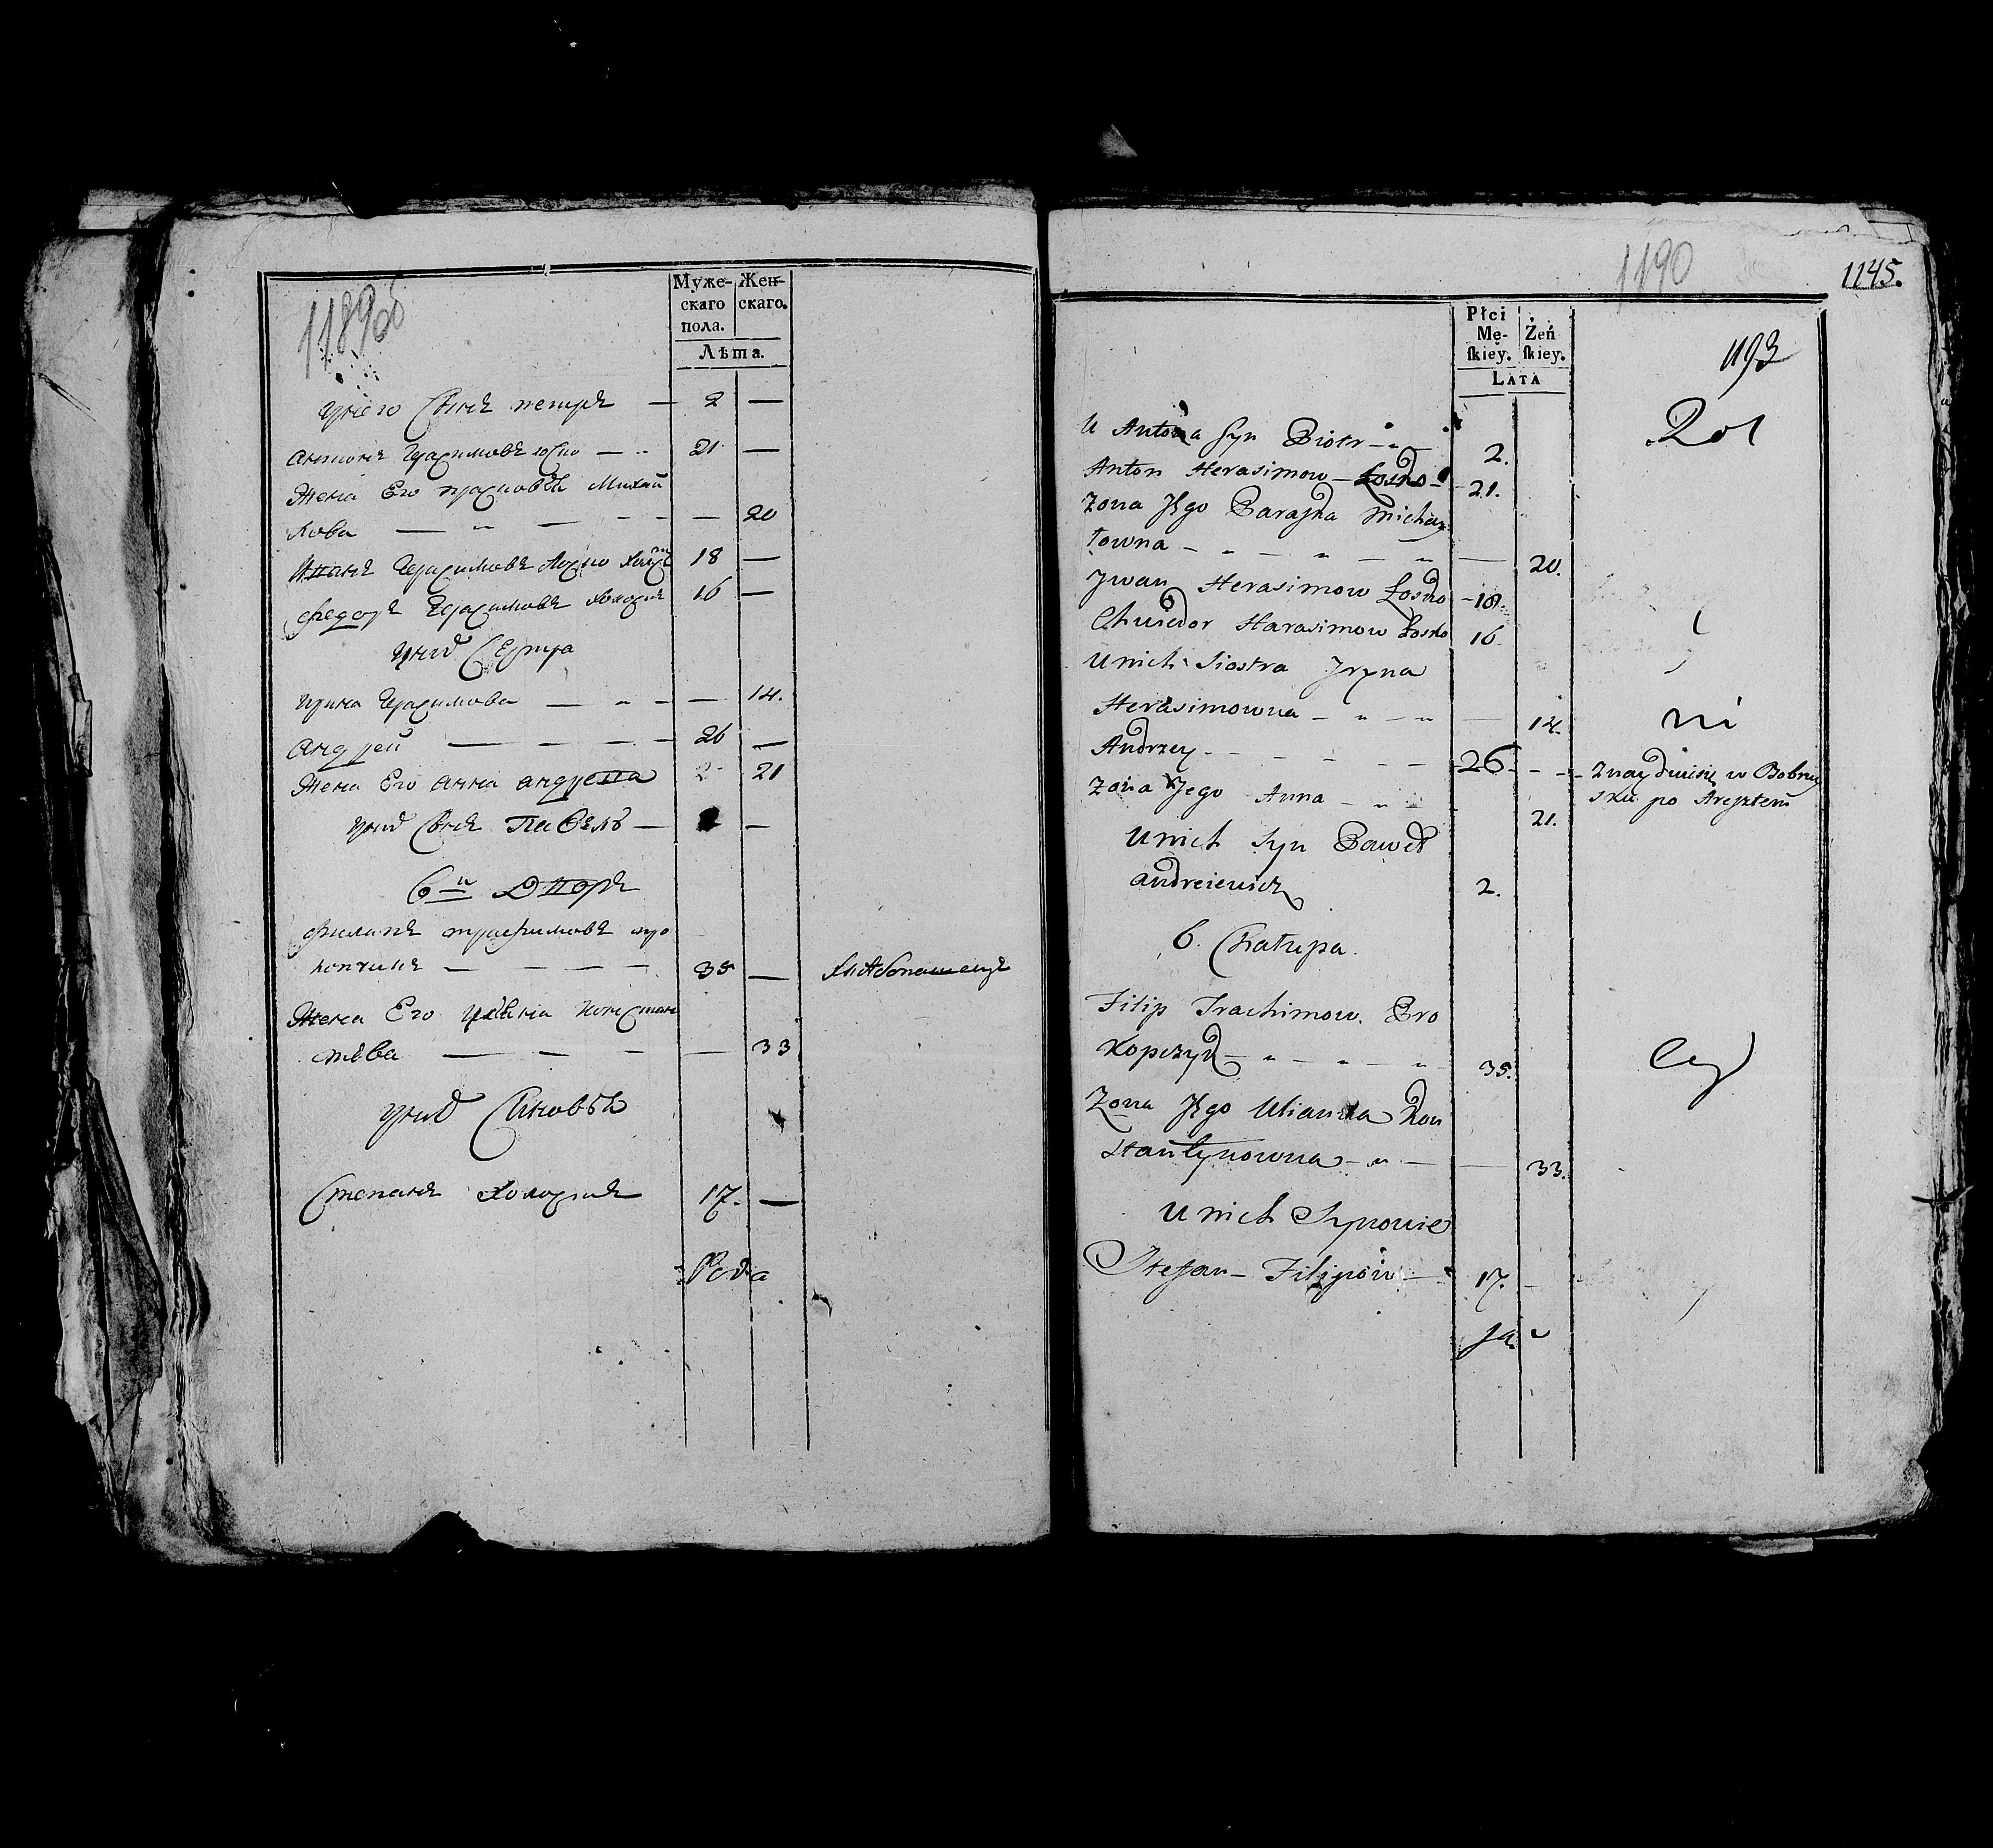 1189 об
Муже-
скаго
пола.
Жен-
скаго.
Лѣта.
унего Сынъ петръ — 2 —
антонъ Герасимовъ — „ 21 —
Жена Его Михай
лова — „ — - - — 20
Иванъ Герасимовъ 18 —
федоръ Герасимовъ холостъ 16 —
уних Сестра
ирина Герасимова — „ - — 14.
андрей — — — - 26 —
Жена Его анна андреева 21
уних Сынъ Павелъ — 2 —
6й Дворъ
филипъ трафимовъ про
копчикъ — — — — 35 —
Жена Его Констан
тѣва — — - — 33
уних Сыновья
Степанъ холостъ 17. —
1190
1145.
Płci
Mę-
ſkiey.
Żeń
ſkiey.
LATA
1193
U Antona Syn Piotr - „ - 2.
Anton Herasimow - Łosko - 21.
Zona Jego Paraska Michay
łowna - „ - „ - „ — 20.
Jwan Herasimow Łosko - 18.
Chwiedor Harasimow Łosko 16
Unich Siostra Jryna
Herasimowna - „ - „ — 14.
ni
Andrzey - - - - - - 26 - - - Znayduie się w Bobruy
sku po Aresztem
Zona Jego Anna - „ - 21.
Unich Syn Paweł
Andreiewicz 2.
6. Chałupa.
Filip Trachimow. Pro
kopczyk - „ - „ - „ 35.
Zona Jego Ulianna Kon
stantynowna - „ - — 33.
Unich Synowie
Stefan - Filipów - 17. -